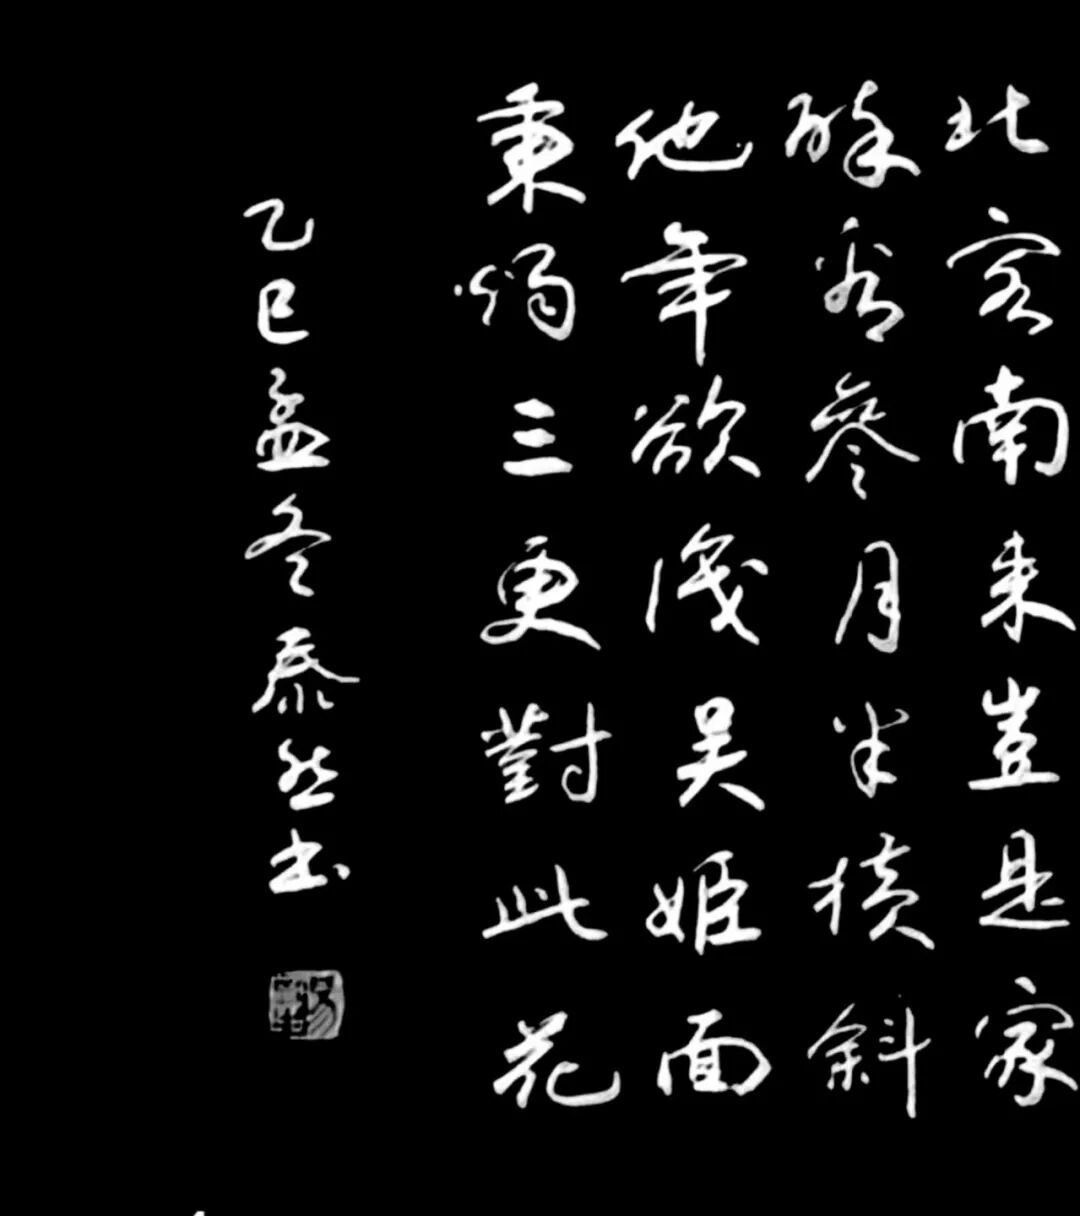 北客南来豈是家
醉看參月半横斜
他年欲識吴姬面
秉燭三更對此花
乙巳孟冬泰然书